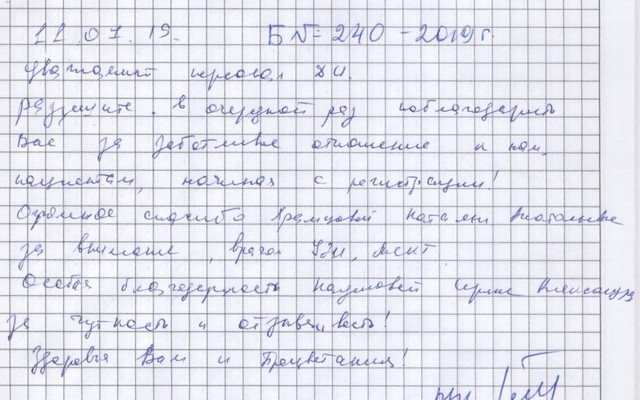 11.07.19. Б№ 240-2019г.
Уважаемый персонал ДЦ.
разрешите в очередной раз поблагодарить
Вас за заботливое отношение к нам,
пациентам, начиная с регистрации!
Огромное спасибо Храмцовой Наталье Анатольевне
за внимание, врачам УЗИ, МСКТ.
Особая благодарность Наумовой Ирине
за чуткость и отзывчивость!
Здоровья Вам и Процветания!